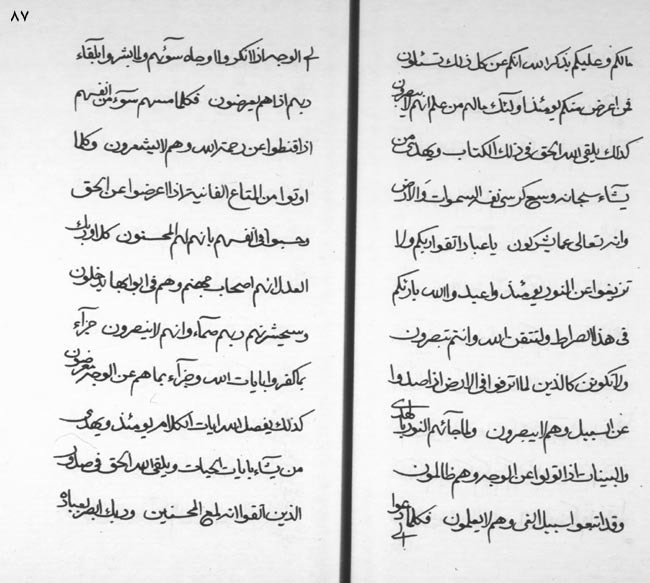 ٨٧
مالكم وعليكم بذكر الله انكم عن كل ذلك تسئلون
فمن اعرض منكم يومئذ اولئك ماله من علم انهم لايبصرون
كذلك يلقي الله الحق في ذلك الكتاب ويهدي من
يشاء سبحانه وسع كرسي نفسه السموات والارض
وانه تعالى عما يشركون ياعباد اتقوا ربكم ولا
تزيغوا عن النور يومئذ واعبدوا الله بارئكم
في هذا الصراط ولتتقن الله وانتم تبصرون
ولا تكونن كالذين لما اترفوا في الارض اذا صدوا
عن السبيل وهم لايبصرون ولما جائهم النور بالهدى
والبينات اذا تولوا عن الوجه وهم ظالمون
وقد اتبعوا سبيل الغي وهم لايعلمون فكلما دعوا الى
لى الوجه اذا انكروا اوجاه سوئهم ولما بشروا بلقاء
ربهم اذا هم يعرضون فكلما مسهم سوء من انفسهم
اذا قنطوا عن رحمة الله وهم لايشعرون وكلما
اوتوا من المتاع الفانية اذا اعرضوا عن الحق
وحسبوا في انفسهم بانهم لهم المحسنون كلا وربك
العدل انهم اصحاب جهنم وهم في ابوابها يدخلون
وسيحشرنهم ربهم صماء وانهم لاينصرون جزاء
بما كفروا بايات الله وجزاء بما هم عن الوجه معرضون
كذلك يفصل الله ايات الكلام يومئذ ويهدي
من يشاء بايات الحيات ويلقي الله الحق في صدور
الذين اتقوا انه لمع المحسنين وربك ابصر بعباده